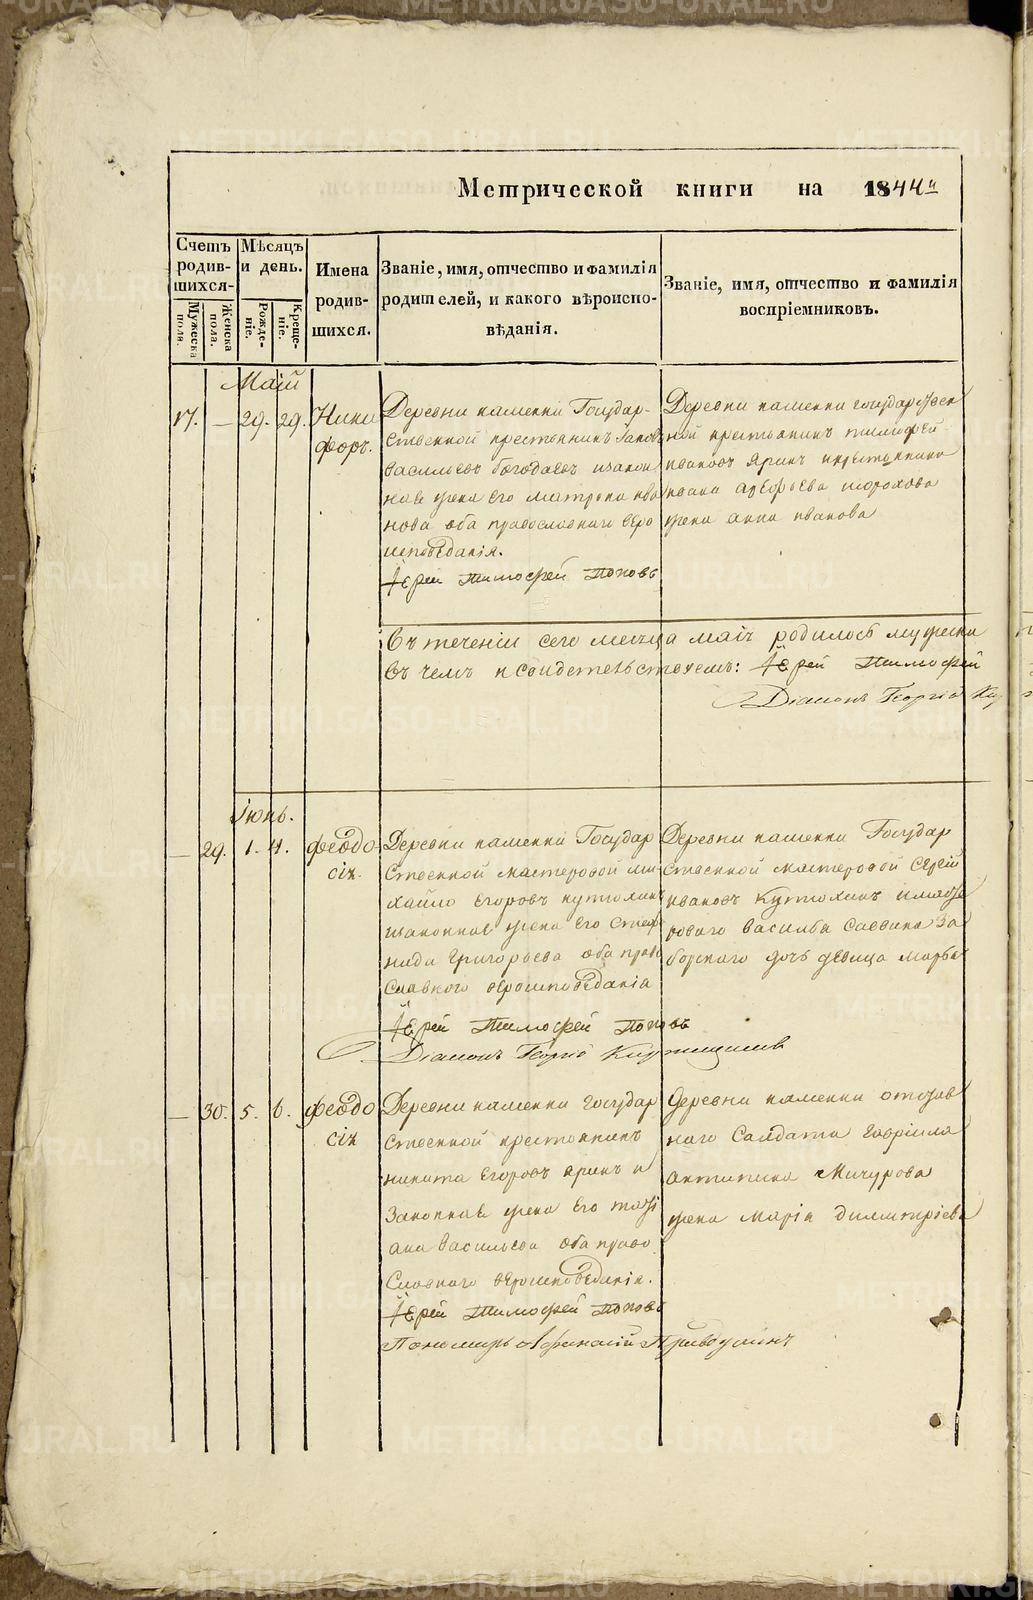 Метрической книги на 1844й
Счетъ родив-шихся.
Мѣсяцъ и день.
Имена родив-шихся.
Званіе, имя, отчество и фамилія
родителей, и какого вѣроиспо-
вѣданія.
Званіе, имя, отчество и фамилія
воспріемниковъ.
Мужеска пола.
Женска пола.
Рожде-ніе.
Креще-ніе.
Маій
17. — 29. 29. Ники
форъ.
Деревни каменки Государ-
ственной крестьянинъ Іаковъ
васильевъ богодаевъ изакон
ная жена Его матрона ива
нова оба православнаго веро
исповѣданія.
Іерей Тимофей Поповъ
Деревни каменки государствен
ной крестьянинъ тимофей
ивановъ Яринъ икрестьянина
ивана шорохова
жена анна иванова
въ течении сего месяца маіа родилось мужеска
въ чемъ и свидетельствуемъ: Іерей Тимофей
Діаконъ Георгій
Іюнь.
— 29. 1. 4. феодо
сія.
Деревни каменки Государ
ственной мастеровой ми
хайло Егоровъ кутюхинъ
изаконная жена Его Степа
нида Григорьева оба право
славного вероисповѣданія
Іерей Тимофей Поповъ
Діаконъ Георгій
Деревни каменки Государ
ственной мастеровой Сергій
ивановъ Кутюхинъ имасте
рового василья Саввина За
борского дочь девица марья
— 30. 5. 6. феодо
сія
Деревни каменки государ
ственной крестьянинъ
никита Егоровъ яринъ и
Законная жена Его таті
ана васильева оба право
Славного вероисповѣданія.
Іерей Тимофей Поповъ
Пономарь Афанасій
Деревни каменки отстав
наго Салдата Гавріила
антипина Мичурова
жена марія димитріева
METRIKI.GASO-URAL.RU